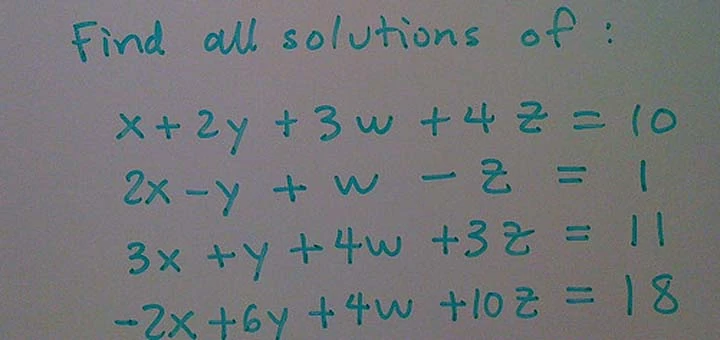 Find all solutions of :
x + 2y + 3w + 4z = 10
2x - y + w - z = 1
3x + y + 4w + 3z = 11
-2x + 6y + 4w + 10z = 18